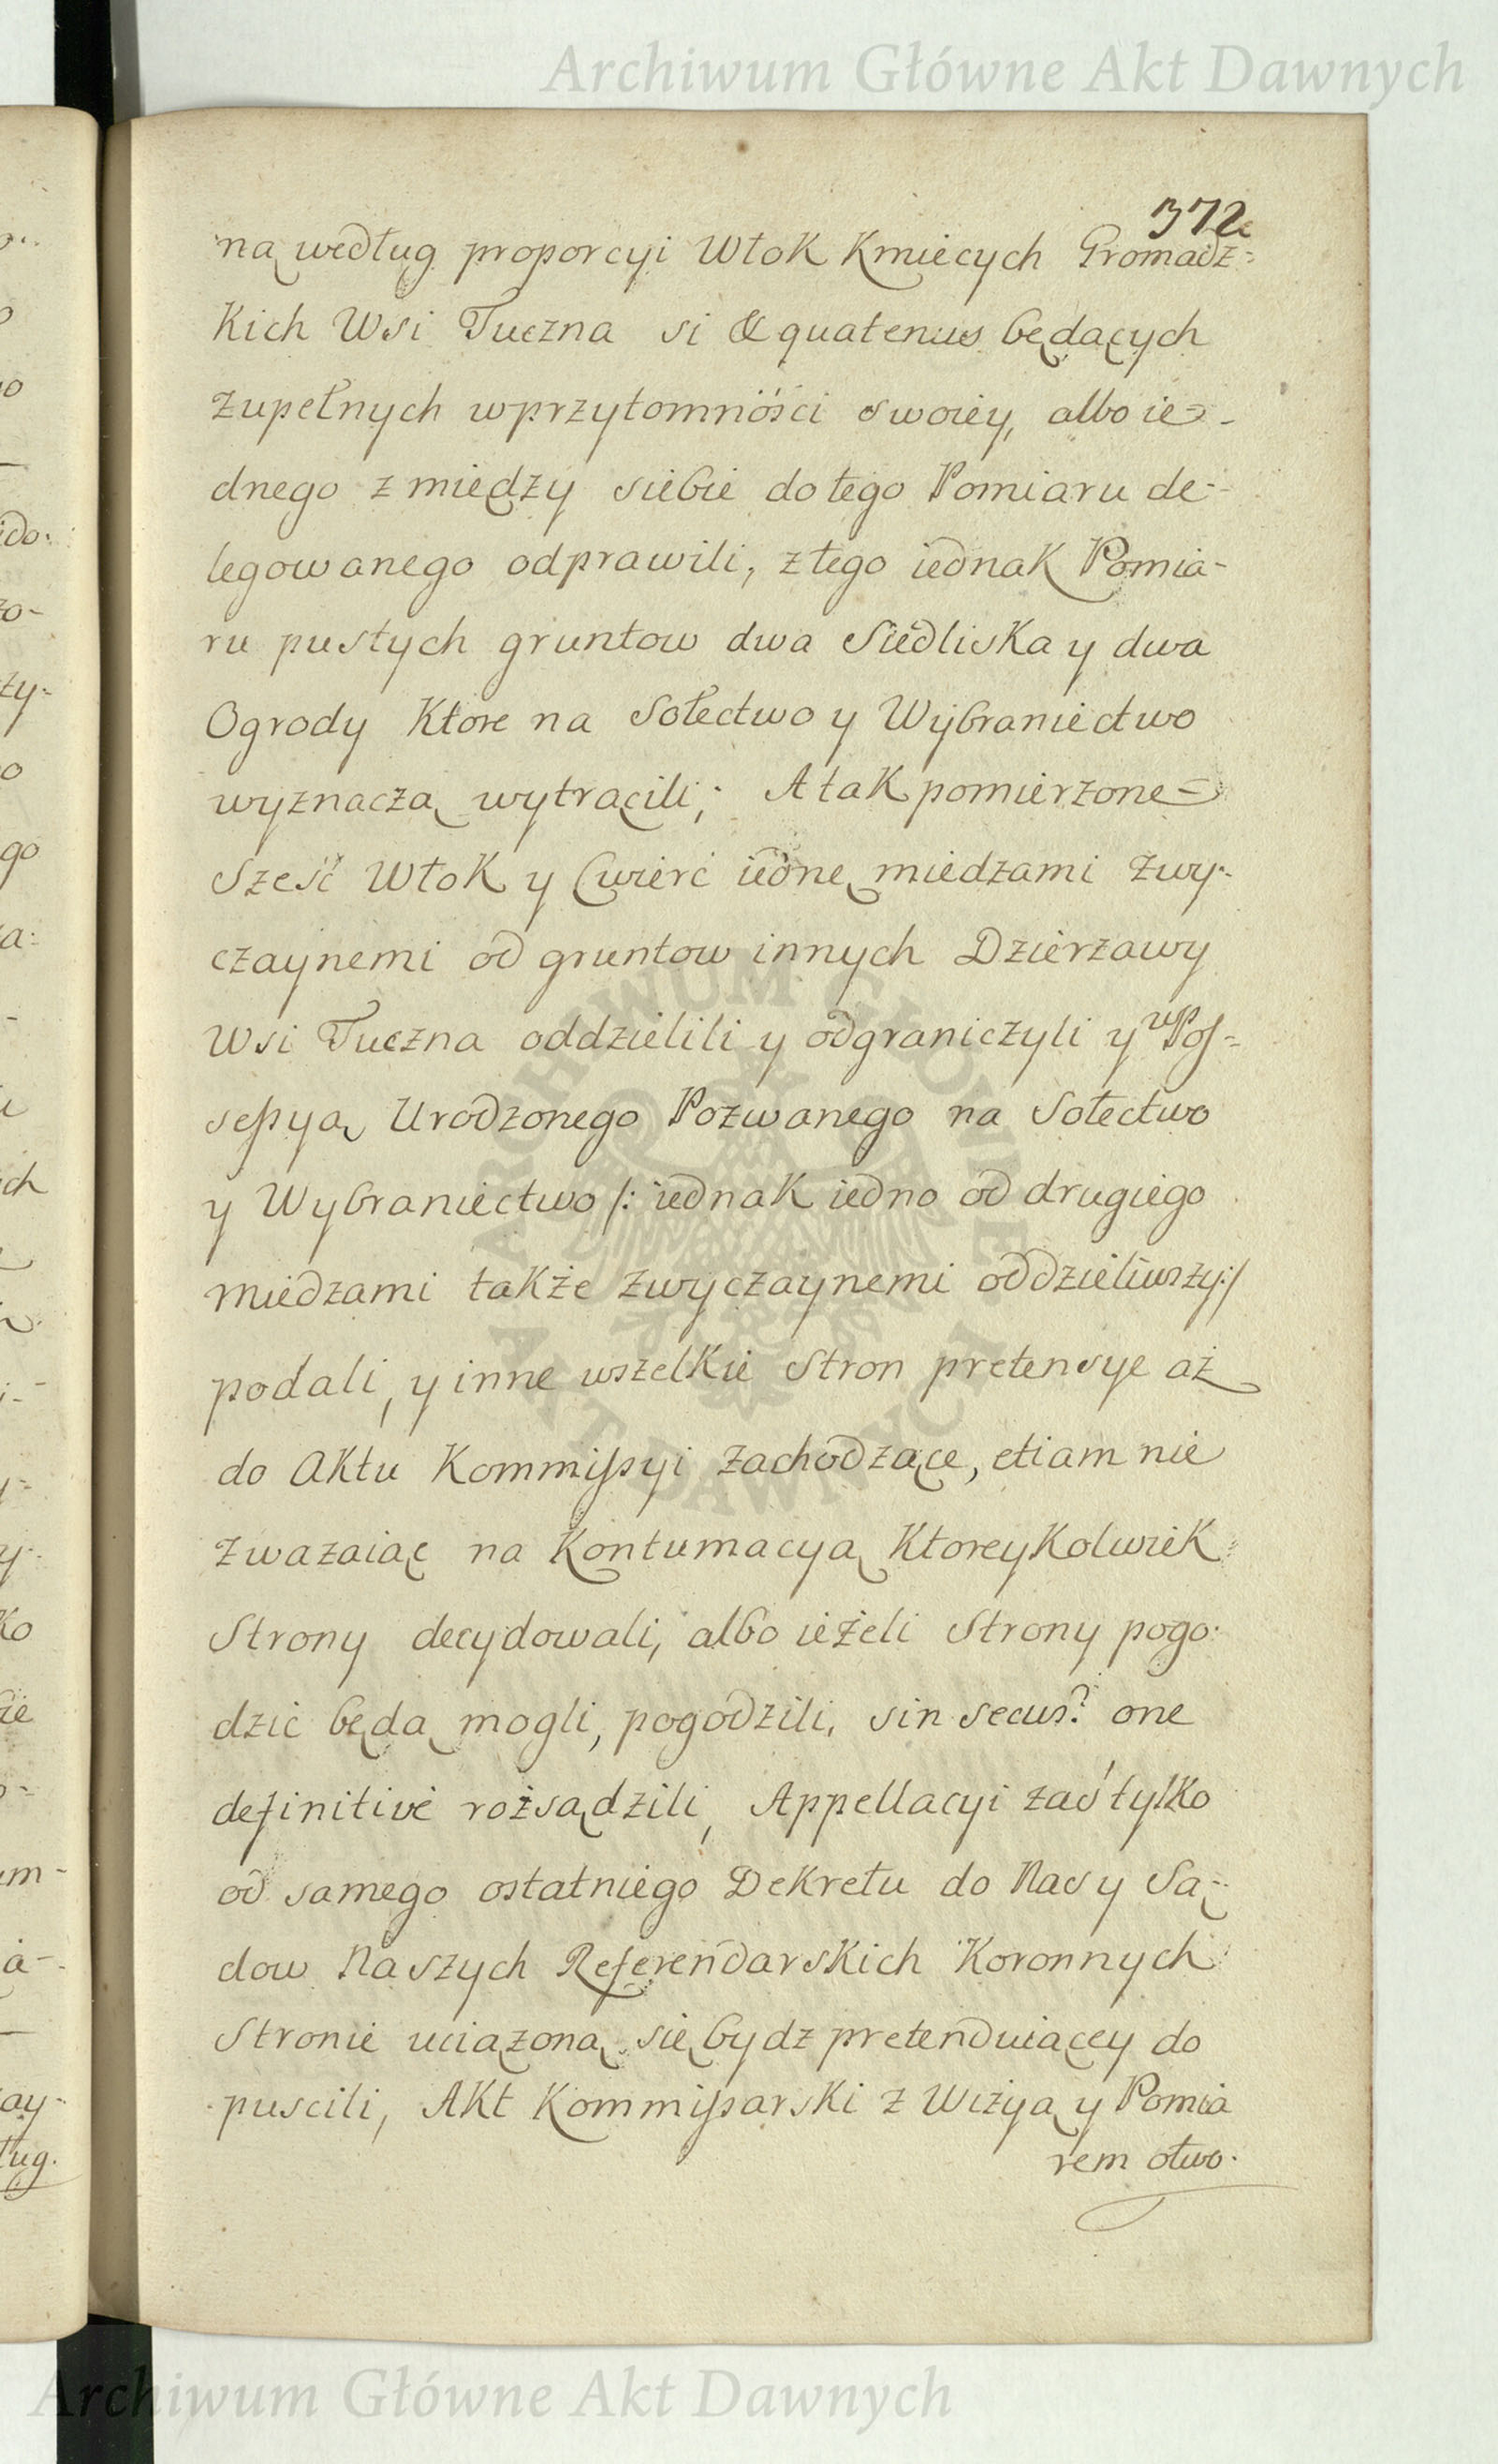 Archiwum Główne Akt Dawnych
372
ną według proporcyi Włok Kmiecych Gromadz=
Kich Wsi Tuczna si & quatenus będących
zupełnych w przytomności swoiey, albo ie-
dnego z między siebie do tego Pomiaru de-
legowanego odprawili, z tego iednak Pomia-
ru pustych gruntow dwa Siedliska y dwa
Ogrody Ktore na Sołectwo y Wybraniectwo
wyznaczą wytrącili; A tak pomierzone
Sześć Włok y Cwierć iednę miedzami zwy-
czaynemi od gruntow innych Dzierzawy
Wsi Tuczna oddzielili y odgraniczyli y w Pos=
sessyą Urodzonego Pozwanego na Sołectwo
y Wybraniectwo /: iednak iedno od drugiego
miedzami także zwyczaynemi oddzieliwszy :/
podali, y inne wszelkie Stron pretensye aż
do Aktu Kommissyi zachodzące, etiam nie
zwazaiąc na Kontumacyą Ktoreykolwiek
Strony decydowali, albo ieżeli Strony pogo-
dzic będą mogli, pogodzili, sin secus? one
definitivè rozsądzili, Appellacyi zaś tylko
od samego ostatniego Dekretu do Nas y Są-
dow Naszych Referendarskich Koronnych
Stronie uciązoną się bydz pretenduiącey do
puscili, Akt Kommissarski z Wizyą y Pomia
rem otwo-
ARCHIWUM GŁÓWNE AKT DAWNYCH
Archiwum Główne Akt Dawnych